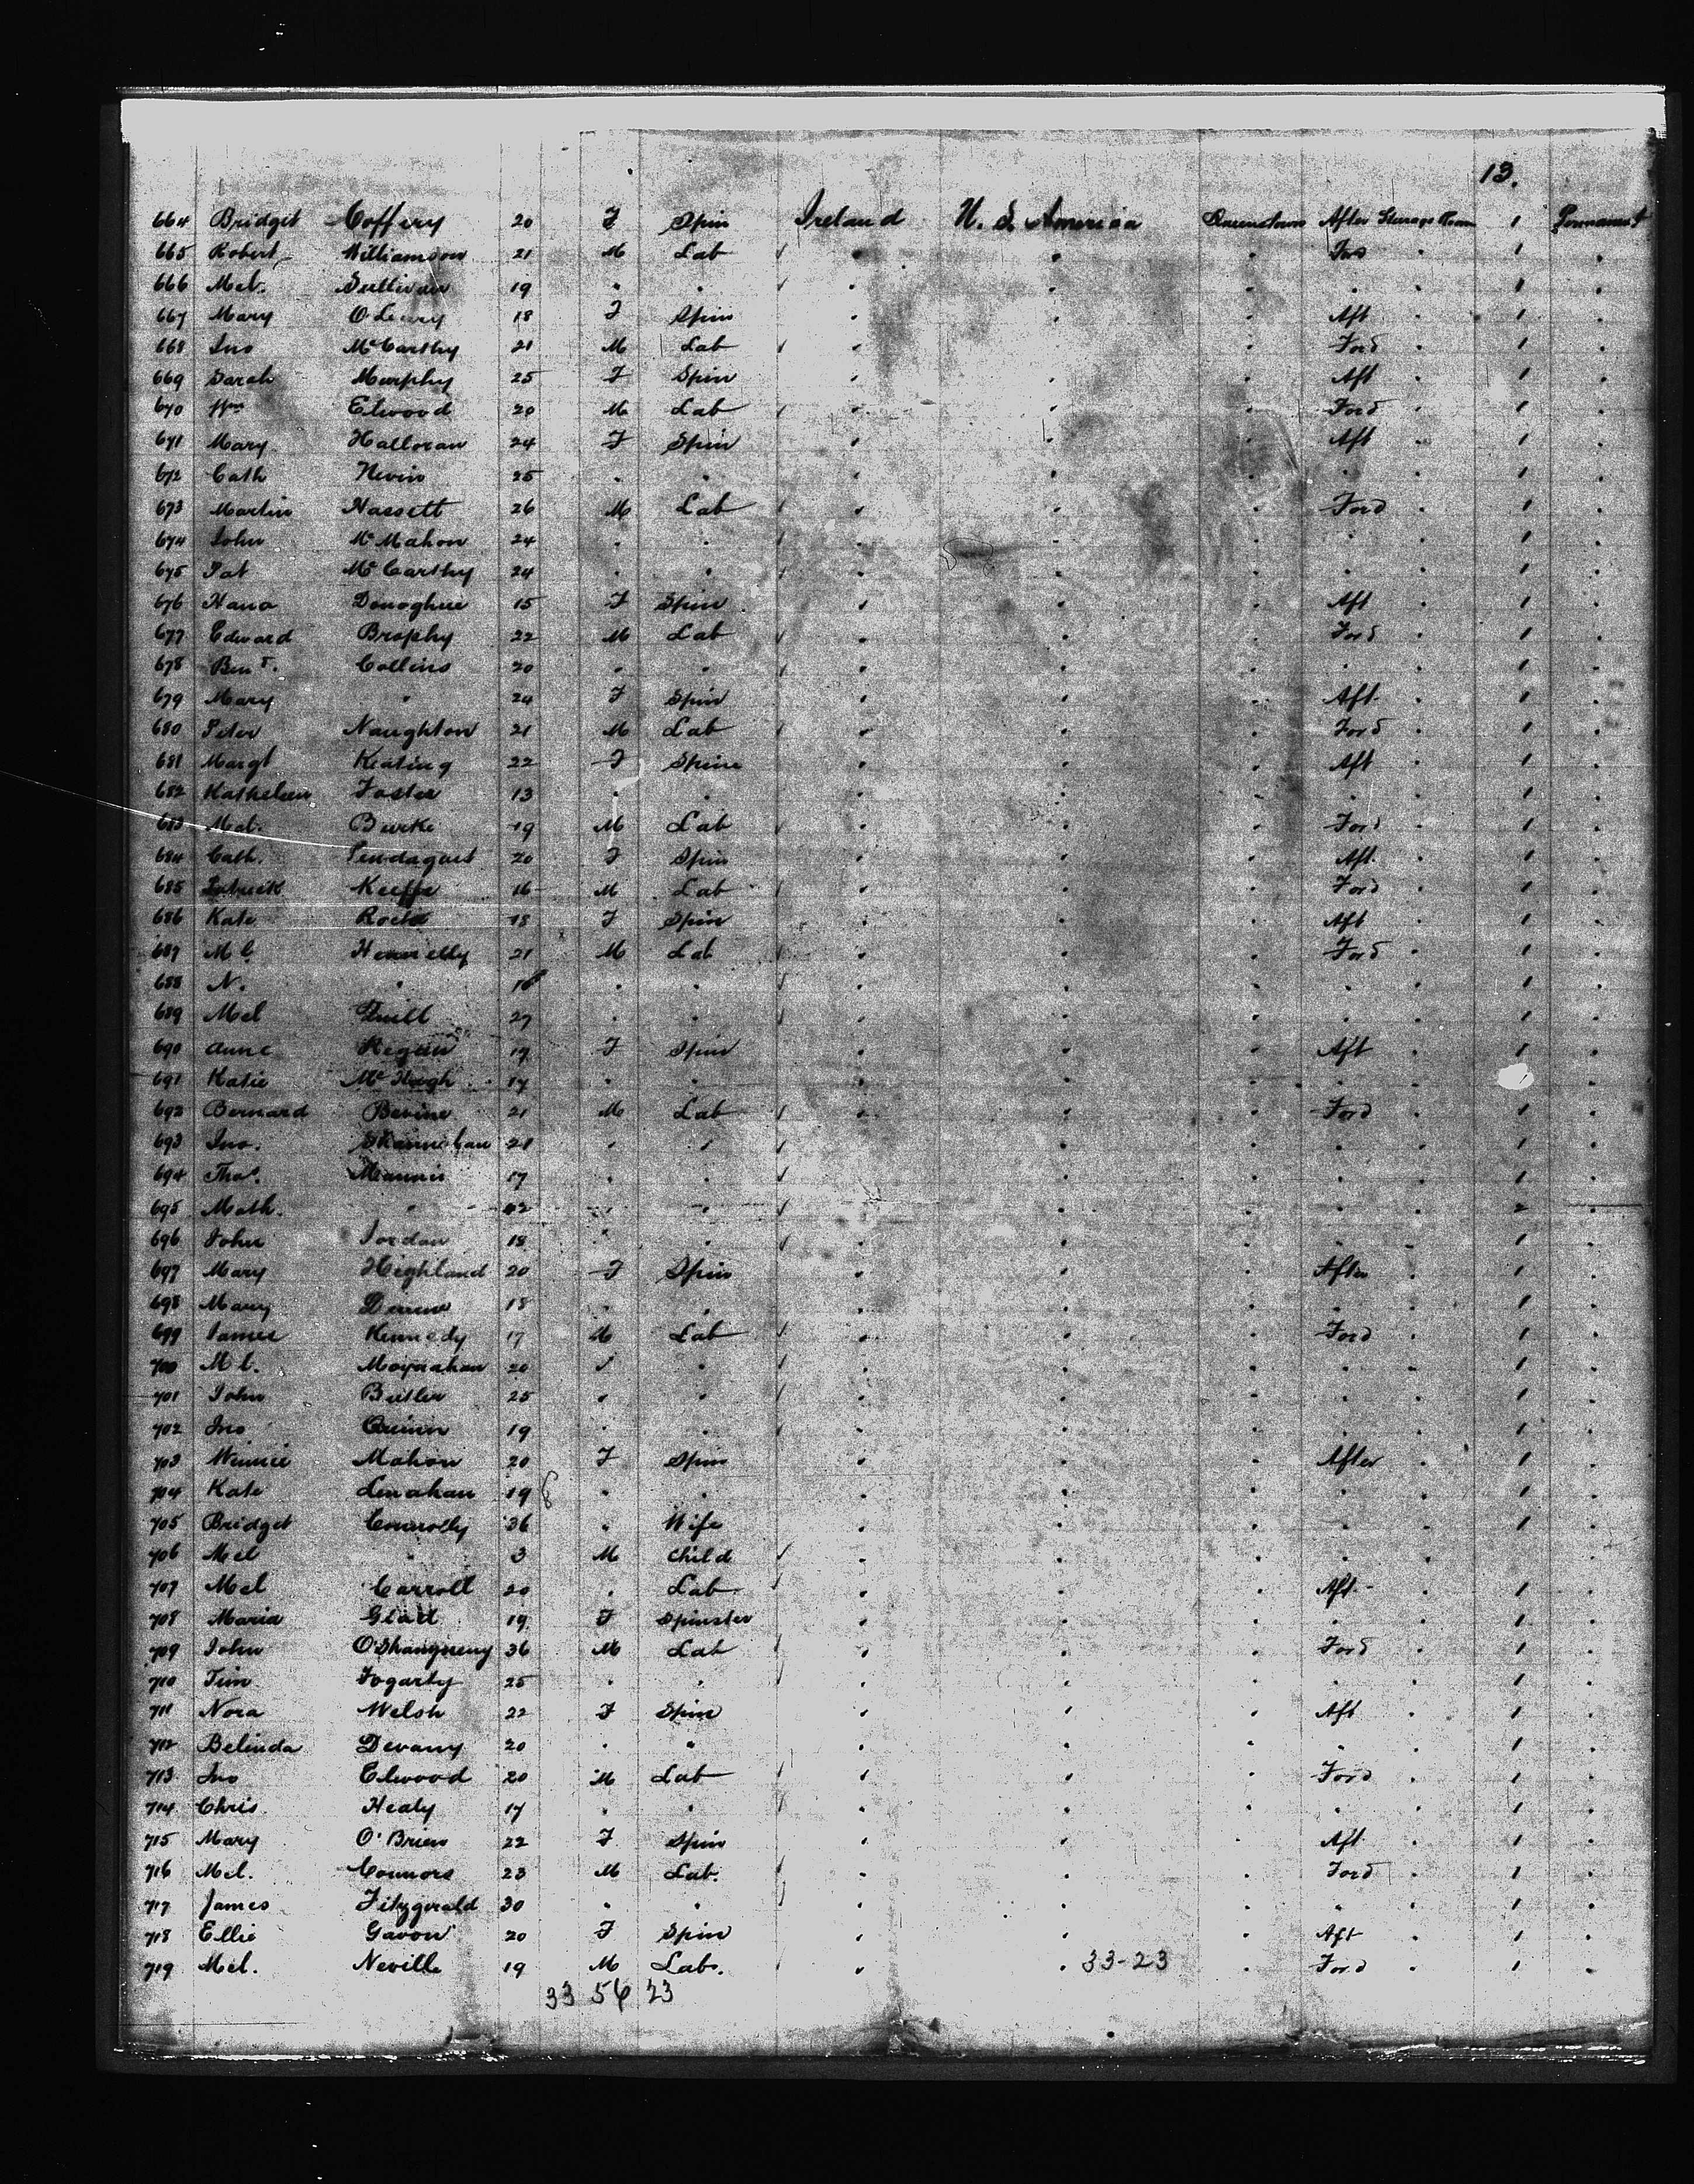 13.
664 Bridget Coffery 20 F Spin Ireland U. S. America Queenstown After Steerage Room 1 Permanent
665 Robert Williamson 21 M Lab " " " Ford " 1 "
666 Mcl. Sullivan 19 " " " " " " " 1 "
667 Mary O'Leary 18 F Spin " " " Aft " 1 "
668 Jno McCarthy 21 M Lab " " " Ford " 1 "
669 Sarah Murphy 25 F Spin " " " Aft " 1 "
670 Wm Elwood 20 M Lab " " " Ford " 1 "
671 Mary Halloran 24 F Spin " " " Aft " 1 "
672 Cath Nevin 25 " " " " " " " 1 "
673 Martin Hassett 26 M Lab " " " Ford " 1 "
674 John McMahon 24 " " " " " " " 1 "
675 Pat McCarthy 24 " " " " " " " 1 "
676 Hana Donoghue 15 F Spin " " " Aft " 1 "
677 Edward Brophy 22 M Lab " " " Ford " 1 "
678 Collins 20 " " " " " " " 1 "
679 Mary " 24 F Spin " " " Aft " 1 "
680 Peter Naughton 21 M Lab " " " Ford " 1 "
681 Margt Keating 22 F Spin " " " Aft " 1 "
682 Kathleen Foster 13 " " " " " " " 1 "
683 Mcl. Burke 19 M Lab " " " Ford " 1 "
684 Cath. 20 F Spin " " " Aft " 1 "
685 Patrick Keeffe 16 M Lab " " " Ford " 1 "
686 Kate Roche 18 F Spin " " " Aft " 1 "
687 Ml. Hennelly 21 M Lab " " " Ford " 1 "
688 N. " " " " " " " " 1 "
689 Mcl Quill 27 " " " " " " " 1 "
690 Anne Regan 19 F Spin " " " Aft " 1 "
691 Katie McHugh 17 " " " " " " " "
692 Bernard 21 M Lab " " " Ford " 1 "
693 Jno. Shannahan 21 " " " " " " " 1 "
694 Thos. Mannis 17 " " " " " " " 1 "
695 Math. " " " " " " " " 2 "
696 John Jordan 18 " " " " " " " 1 "
697 Mary Highland 20 F Spin " " " After " 1 "
698 Mary 18 " " " " " " " 1 "
699 James Kennedy 17 M Lab " " " Ford " 1 "
700 Ml. Moynahan 20 " " " " " " " 1 "
701 John Butler 25 " " " " " " " 1 "
702 Jno Quinn 19 " " " " " " " 1 "
703 Winnie Mahon 20 F Spin " " " After " 1 "
704 Kate Lenahan 19 " " " " " " " 1 "
705 Bridget Connolly 36 " Wife " " " " " 1 "
706 Mcl " 3 M Child " " " " " "
707 Mcl Carroll 20 " Lab " " " Aft " 1 "
708 Maria Glad 19 F Spinster " " " " " 1 "
709 John O'Shaugneny 36 M Lab " " " Ford " 1 "
710 Tim Fogarty 25 " " " " " " " 1 "
711 Nora Welsh 22 F Spin " " " Aft " 1 "
712 Belinda Devany 20 " " " " " " " 1 "
713 Jno Elwood 20 M Lab " " " Ford " 1 "
714 Chris. Healy 17 " " " " " " " 1 "
715 Mary O'Brien 22 F Spin " " " Aft " 1 "
716 Mcl. Connors 23 M Lab. " " " Ford " 1 "
717 James Fitzgerald 30 " " " " " " " 1 "
718 Ellie Gavon 20 F Spin " " " Aft " 1 "
719 Mcl. Neville 19 M Lab. " " 33-23 " Ford " 1 "
33 56 23